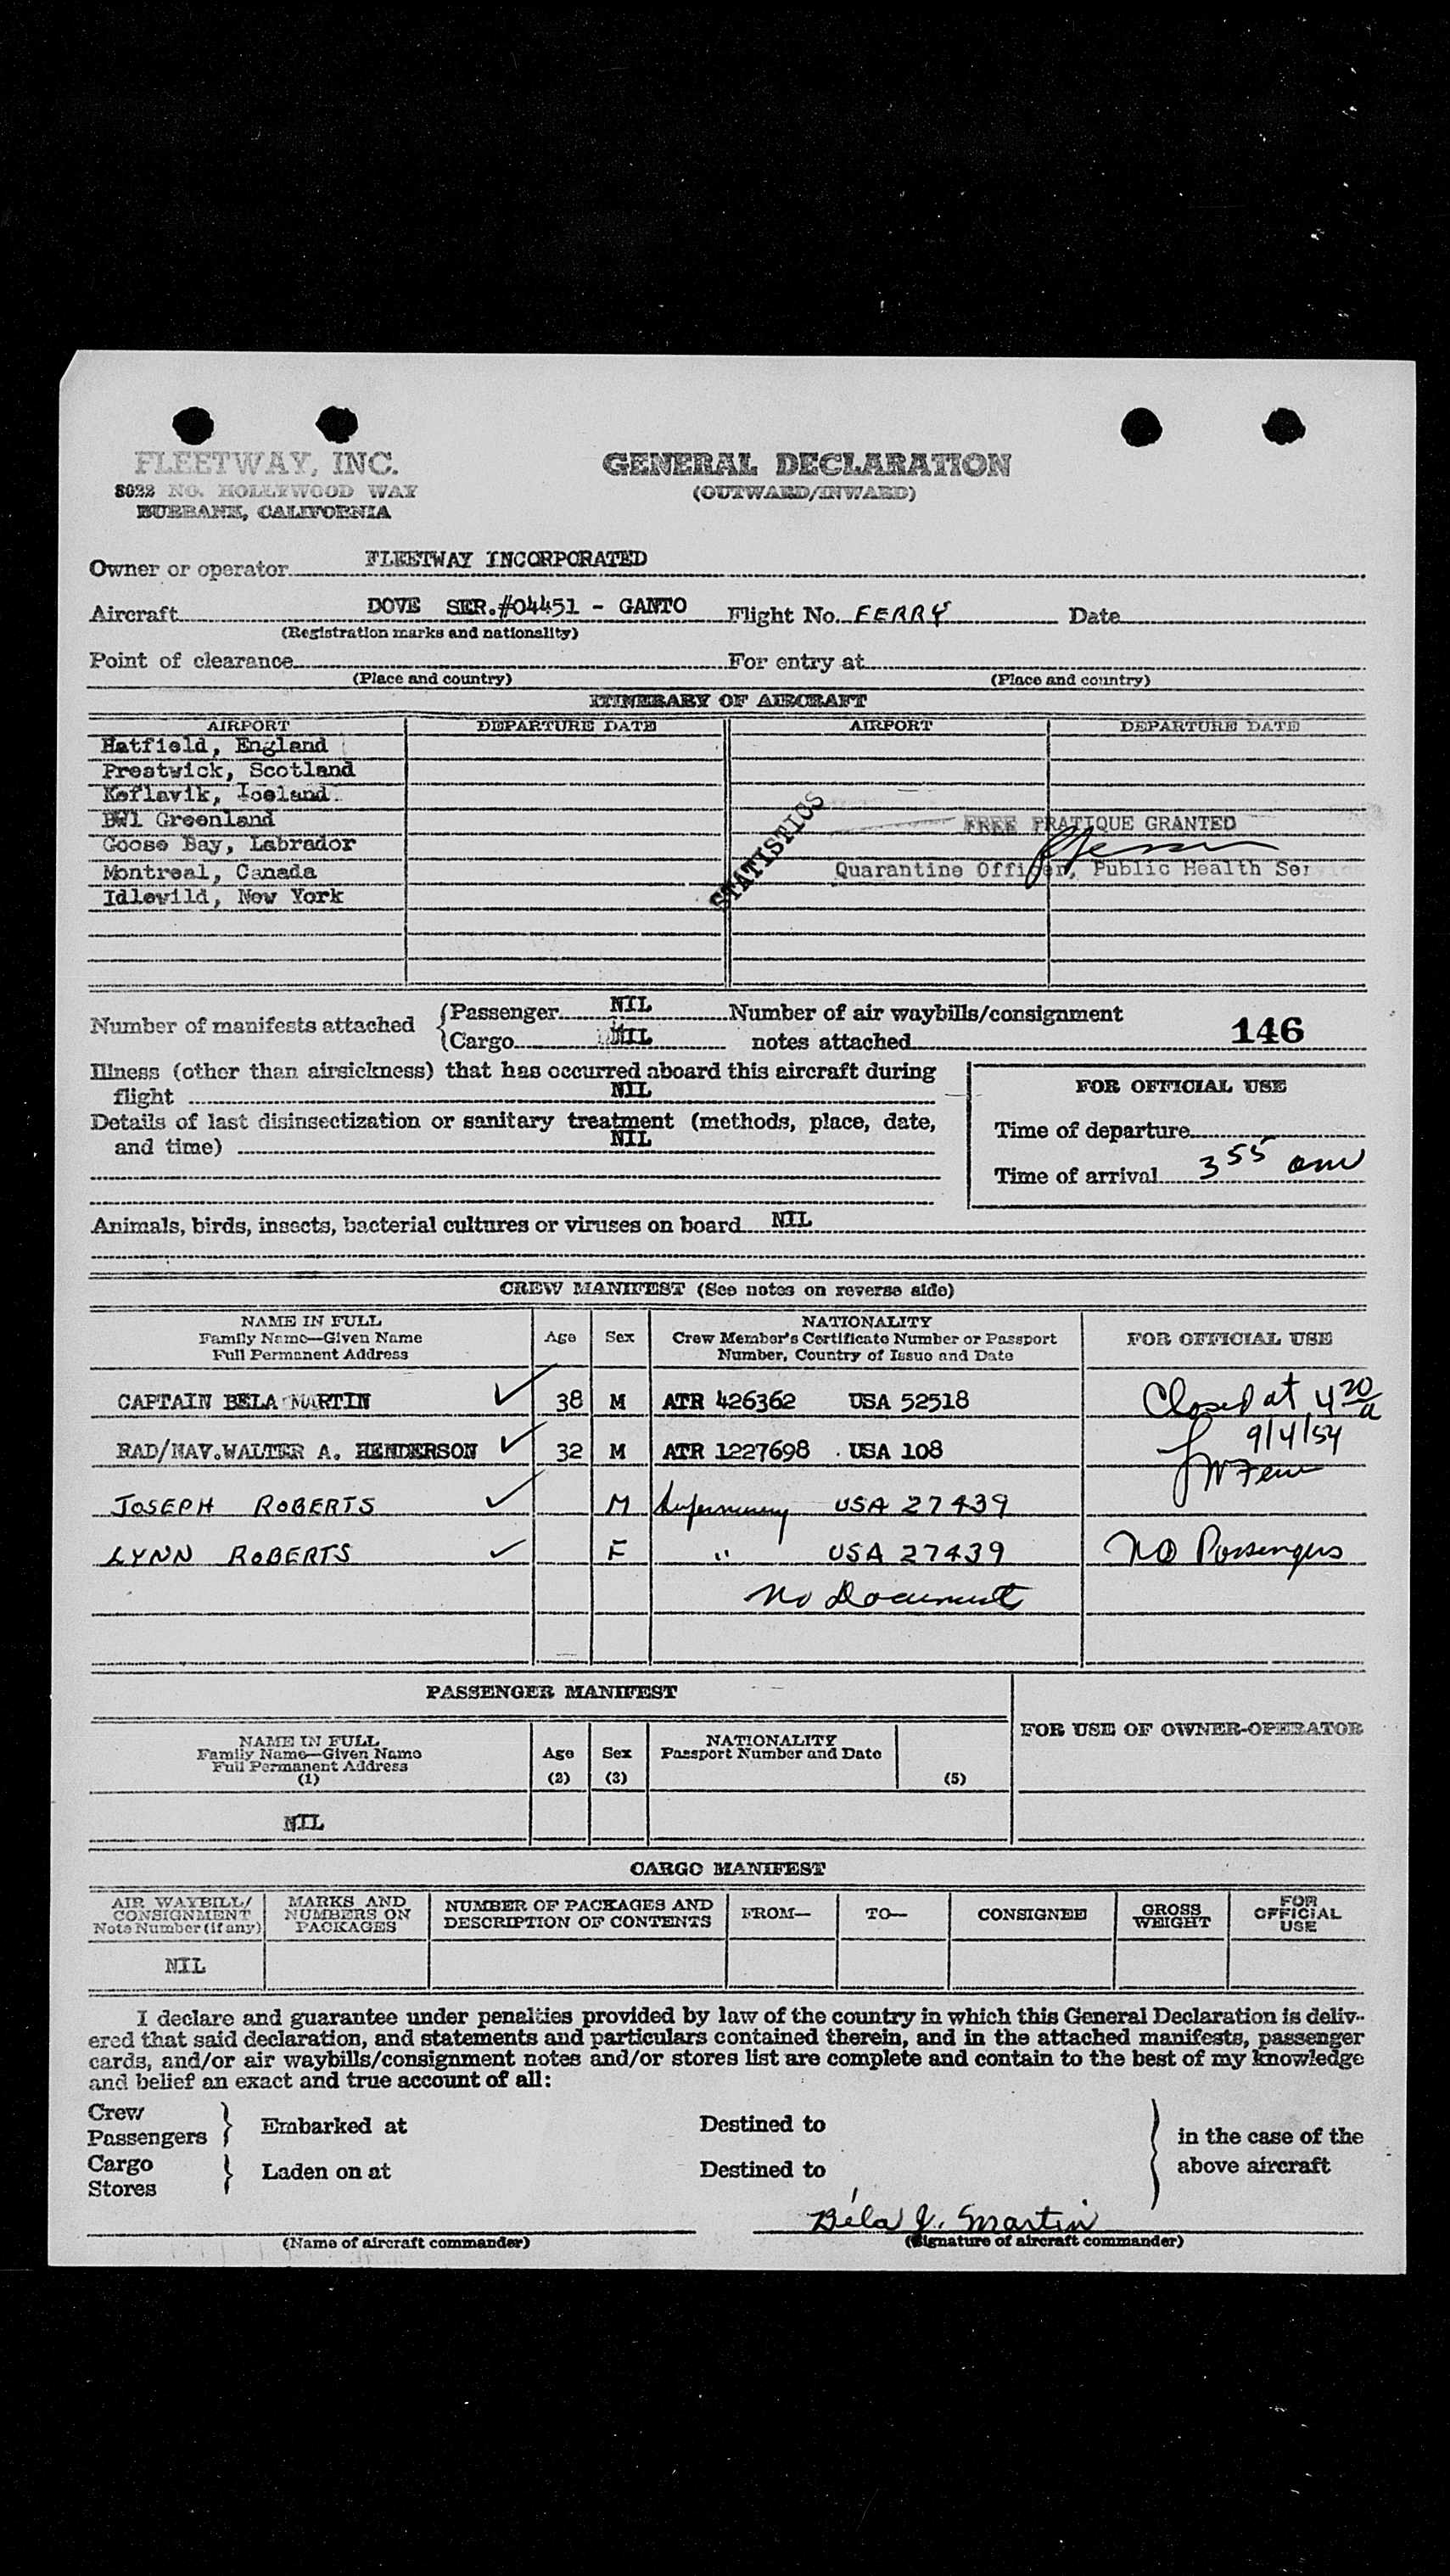 FLEETWAY, INC.
8022 NO. HOLLYWOOD WAY
BURBANK, CALIFORNIA
GENERAL DECLARATION
(OUTWARD/INWARD)
Owner or operator FLEETWAY INCORPORATED
Aircraft DOVE SER.#04451 - GANTO Flight No. FERRY Date
(Registration marks and nationality)
Point of clearance For entry at
(Place and country) (Place and country)
ITINERARY OF AIRCRAFT
AIRPORT DEPARTURE DATE AIRPORT DEPARTURE DATE
Hatfield, England
Prestwick, Scotland
Keflavik, Iceland
BW1 Greenland
Goose Bay, Labrador
Montreal, Canada
Idlewild, New York
STATISTICS
FREE PRATIQUE GRANTED
Quarantine Officer, Public Health Service
Number of manifests attached Passenger NIL Number of air waybills/consignment
Cargo NIL notes attached 146
Illness (other than airsickness) that has occurred aboard this aircraft during
flight NIL
Details of last disinsectization or sanitary treatment (methods, place, date,
and time) NIL
FOR OFFICIAL USE
Time of departure
Time of arrival 3 55 am
Animals, birds, insects, bacterial cultures or viruses on board NIL
CREW MANIFEST (See notes on reverse side)
NAME IN FULL
Family Name—Given Name
Full Permanent Address
Age
Sex
NATIONALITY
Crew Member's Certificate Number or Passport
Number, Country of Issue and Date
FOR OFFICIAL USE
CAPTAIN BELA MARTIN 38 M ATR 426362 USA 52518 Closed at 4 20 a
RAD/NAV. WALTER A. HENDERSON 32 M ATR 1227698 USA 108 9/4/54
JOSEPH ROBERTS M Supernumery USA 27439
LYNN ROBERTS F " USA 27439 No Passengers
No Document
PASSENGER MANIFEST
FOR USE OF OWNER-OPERATOR
NAME IN FULL
Family Name—Given Name
Full Permanent Address
(1)
Age
(2)
Sex
(3)
NATIONALITY
Passport Number and Date
(5)
NIL
CARGO MANIFEST
AIR WAYBILL/
CONSIGNMENT
Note Number (if any)
MARKS AND
NUMBERS ON
PACKAGES
NUMBER OF PACKAGES AND
DESCRIPTION OF CONTENTS
FROM—
TO—
CONSIGNEE
GROSS
WEIGHT
FOR
OFFICIAL
USE
NIL
I declare and guarantee under penalties provided by law of the country in which this General Declaration is deliv-
ered that said declaration, and statements and particulars contained therein, and in the attached manifests, passenger
cards, and/or air waybills/consignment notes and/or stores list are complete and contain to the best of my knowledge
and belief an exact and true account of all:
Crew
Passengers Embarked at Destined to
Cargo
Stores Laden on at Destined to
in the case of the
above aircraft
Béla J. Martin
(Name of aircraft commander) (Signature of aircraft commander)